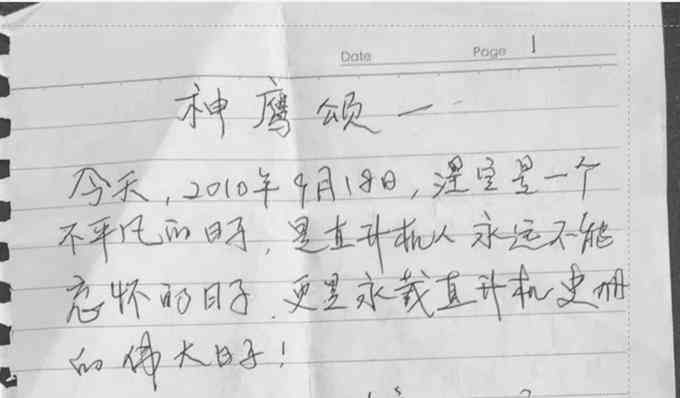 Date Page 1
神鹰颂一
今天,2010年9月18日,湿室是一个
不平凡的日子,是直升机人永远不能
忘怀的日子.更是永载直升机史册
的伟大日子!